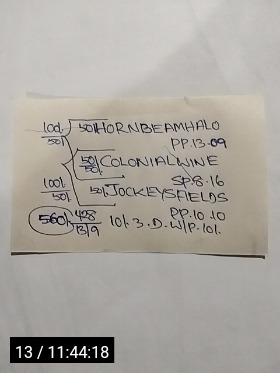 100/. 50/. HORNBEAM HALO
50/. PP.13.09
50/. COLONIAL WINE
50/.
100/. SP.8.16
50/. 50/. JOCKEYSFIELDS
560/. 428 PP.10.10
13/9 10/. 3.D.W/P.10/.
13 / 11:44:18